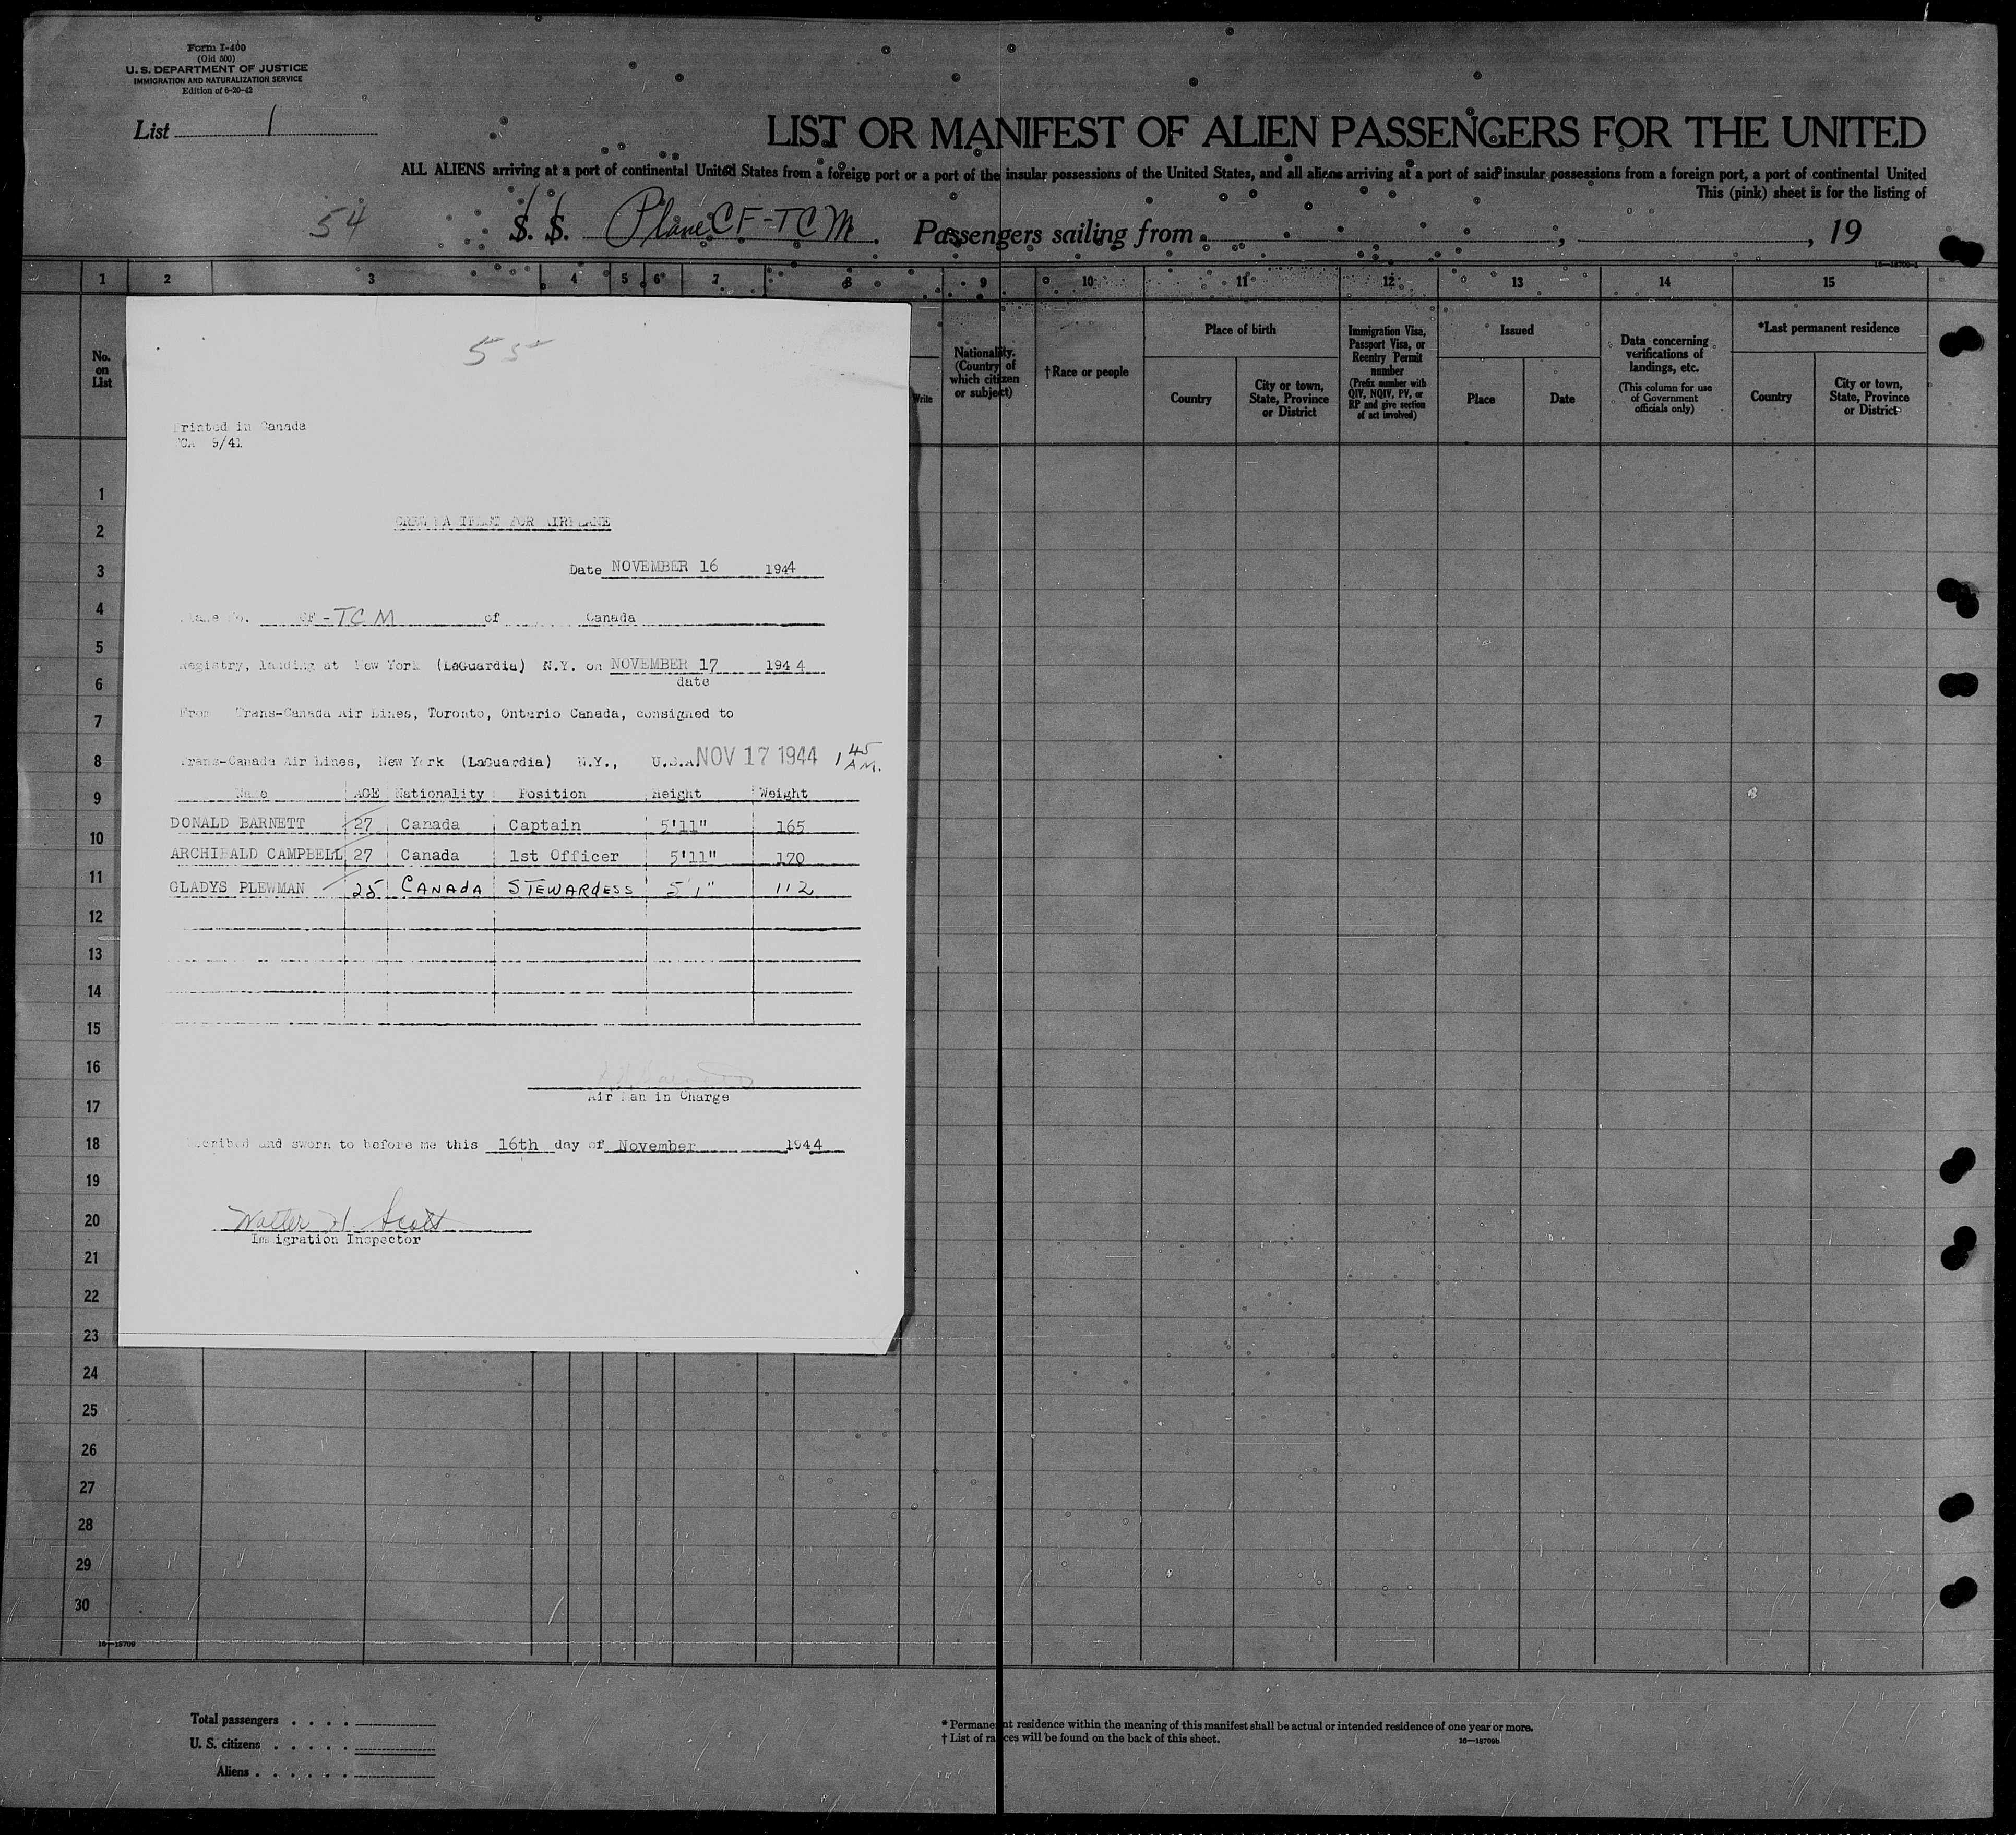 Form I-400
(Old 500)
U. S. DEPARTMENT OF JUSTICE
IMMIGRATION AND NATURALIZATION SERVICE
Edition of 6-20-42
List 1
LIST OR MANIFEST OF ALIEN PASSENGERS FOR THE UNITED
ALL ALIENS arriving at a port of continental United States from a foreign port or a port of the insular possessions of the United States, and all aliens arriving at a port of said insular possessions from a foreign port, a port of continental United
This (pink) sheet is for the listing of
54 S. S. Plane CF-TCM. Passengers sailing from , , 19
16—18709-1
1 2 3 4 5 6 7 8 9 10 11 12 13 14 15
No. on List
Write
Nationality. (Country of which citizen or subject)
†Race or people
Place of birth
Country
City or town, State, Province or District
Immigration Visa, Passport Visa, or Reentry Permit number
(Prefix number with QIV, NQIV, PV, or RP and give section of act involved)
Issued
Place
Date
Data concerning verifications of landings, etc.
(This column for use of Government officials only)
*Last permanent residence
Country
City or town, State, Province or District
55
Printed in Canada
TCA 9/41
CREW MANIFEST FOR AIRPLANE
Date NOVEMBER 16 1944
Plane No. CF-TCM of Canada
Registry, landing at New York (LaGuardia) N.Y. on NOVEMBER 17 1944
date
From Trans-Canada Air Lines, Toronto, Ontario Canada, consigned to
Trans-Canada Air Lines, New York (LaGuardia) N.Y., U.S.A. NOV 17 1944 1 45 A.M.
Name AGE Nationality Position Height Weight
DONALD BARNETT 27 Canada Captain 5'11" 165
ARCHIBALD CAMPBELL 27 Canada 1st Officer 5'11" 170
GLADYS PLEWMAN 25 CANADA STEWARDESS 5'1" 112
Air Man in Charge
scribed and sworn to before me this 16th day of November 1944
Walter H. Scott
Immigration Inspector
1
2
3
4
5
6
7
8
9
10
11
12
13
14
15
16
17
18
19
20
21
22
23
24
25
26
27
28
29
30
16—18709
Total passengers . . . .
U. S. citizens . . . . .
Aliens . . . . . .
* Permanent residence within the meaning of this manifest shall be actual or intended residence of one year or more.
† List of races will be found on the back of this sheet.
16—18709b